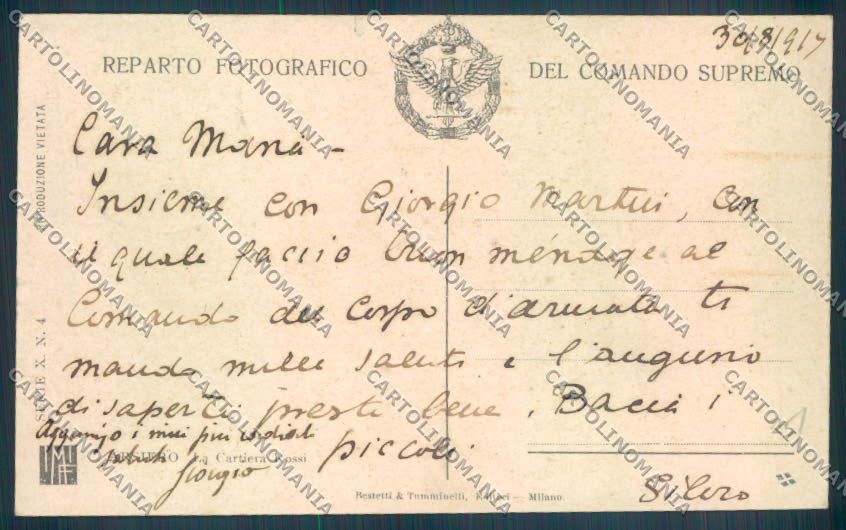 30/8/917
REPARTO FOTOGRAFICO DEL COMANDO SUPREMO
Cara Maria -
Insieme con Giorgio Martini, con
il quale faccio buon ménage al
Comando del Corpo d'armata ti
mando mille saluti e l'augurio
di saperti presto bene. Bacia i
piccoli
Silvio
Aggiungo i miei più cordiali
saluti
Giorgio
ARSIERO La Cartiera Rossi
Bestetti & Tumminelli, Editori — Milano
SERIE X. N. 4
RIPRODUZIONE VIETATA
1
CARTOLINOMANIA